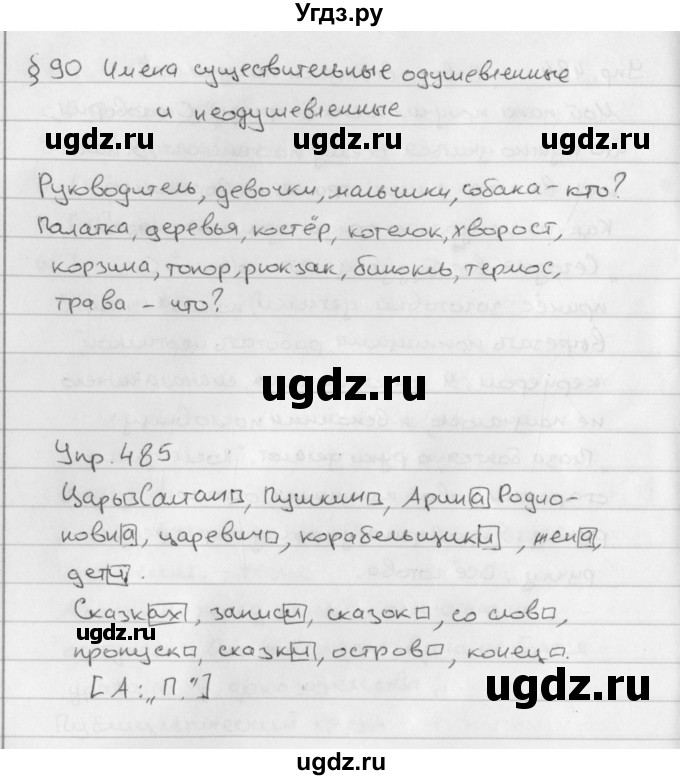 Угдз.ру
§ 90 Имена существительные одушевлённые
и неодушевлённые
ugdz.ru ugdz.ru ugdz.ru
Руководитель, девочки, мальчики, собака – кто?
Палатка, деревья, костёр, котелок, хворост,
корзина, топор, рюкзак, бинокль, термос,
трава – что?
ugdz.ru
Упр. 485
Царь□ Салтан□, Пушкин□, Арин[а] Родио-
новн[а], царевич□, корабельщик[и], жен[а],
дет[и].
Сказк[ах], запис[и], сказок□, со слов□,
ugdz.ru
пропуск□, сказк[и], остров□, конец□.
[А: „П."]
ugdz.ru
ugdz.ru